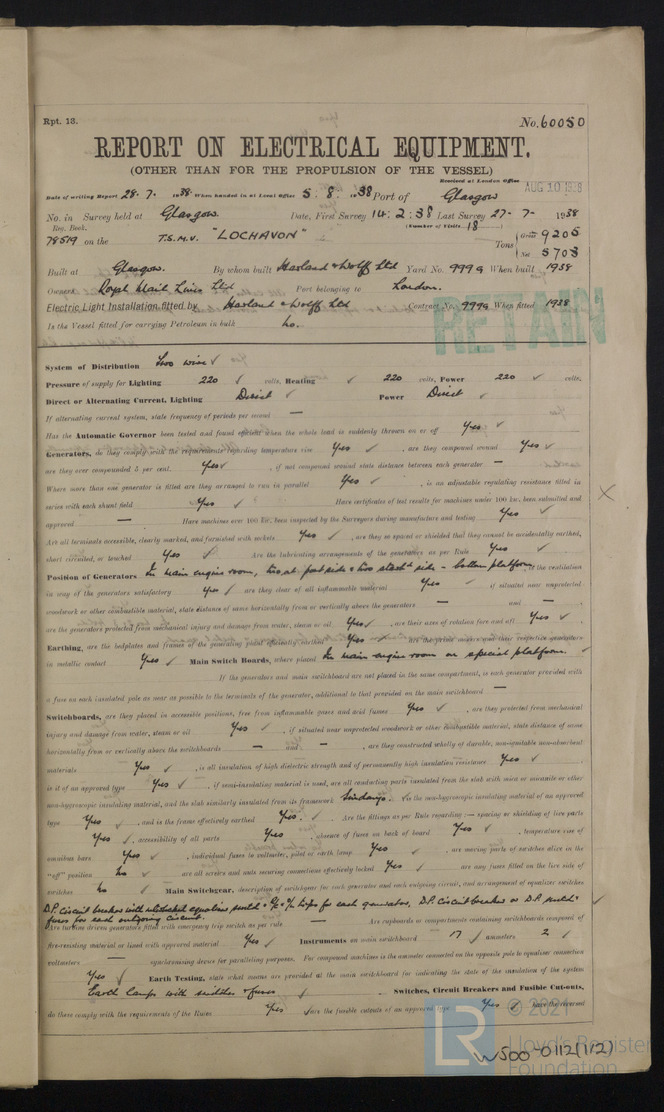 Rpt. 13. No. 60050
REPORT ON ELECTRICAL EQUIPMENT.
(OTHER THAN FOR THE PROPULSION OF THE VESSEL)
Received at London Office AUG 10 1938
Date of writing Report 28.7.1938 When handed in at Local Office 5.8.1938 Port of Glasgow
No. in Survey held at Glasgow Date, First Survey 14:2:38 Last Survey 27-7-1938
Reg. Book. (Number of Visits 18)
78519 on the T.S.M.V. "LOCHAVON" Tons { Gross 9205
Net 5703
Built at Glasgow. By whom built Harland & Wolff Ltd Yard No. 999G When built 1938
Owners Royal Mail Lines Ltd Port belonging to London.
Electric Light Installation fitted by Harland & Wolff Ltd Contract No. 999G When fitted 1938
Is the Vessel fitted for carrying Petroleum in bulk No.
RETAIN
System of Distribution Two wire ✓
Pressure of supply for Lighting 220 ✓ volts, Heating ✓ 220 volts, Power 220 ✓ volts.
Direct or Alternating Current, Lighting Direct ✓ Power Direct ✓
If alternating current system, state frequency of periods per second —
Has the Automatic Governor been tested and found efficient when the whole load is suddenly thrown on or off Yes ✓
Generators, do they comply with the requirements regarding temperature rise Yes ✓, are they compound wound Yes ✓
are they over compounded 5 per cent. Yes ✓, if not compound wound state distance between each generator —
Where more than one generator is fitted are they arranged to run in parallel Yes ✓, is an adjustable regulating resistance fitted in
series with each shunt field Yes ✓ Have certificates of test results for machines under 100 kw. been submitted and
approved — Have machines over 100 kw. been inspected by the Surveyors during manufacture and testing Yes ✓
Are all terminals accessible, clearly marked, and furnished with sockets Yes ✓, are they so spaced or shielded that they cannot be accidentally earthed,
short circuited, or touched Yes ✓ Are the lubricating arrangements of the generators as per Rule Yes ✓
Position of Generators In main engine room, two at port side & two starbd side - bottom platform, is the ventilation
in way of the generators satisfactory Yes ✓ are they clear of all inflammable material Yes ✓ if situated near unprotected
woodwork or other combustible material, state distance of same horizontally from or vertically above the generators — and —
are the generators protected from mechanical injury and damage from water, steam or oil Yes ✓, are their axes of rotation fore and aft Yes ✓
Earthing, are the bedplates and frames of the generating plant efficiently earthed Yes ✓ are the prime movers and their respective generators
in metallic contact Yes ✓ Main Switch Boards, where placed In main engine room on special platform. ✓
If the generators and main switchboard are not placed in the same compartment, is each generator provided with
a fuse on each insulated pole as near as possible to the terminals of the generator, additional to that provided on the main switchboard —
Switchboards, are they placed in accessible positions, free from inflammable gases and acid fumes Yes ✓, are they protected from mechanical
injury and damage from water, steam or oil Yes ✓, if situated near unprotected woodwork or other combustible material, state distance of same
horizontally from or vertically above the switchboards — and —, are they constructed wholly of durable, non-ignitable non-absorbent
materials Yes ✓, is all insulation of high dielectric strength and of permanently high insulation resistance Yes ✓
is it of an approved type Yes ✓, if semi-insulating material is used, are all conducting parts insulated from the slab with mica or micanite or other
non-hygroscopic insulating material, and the slab similarly insulated from its framework Sindanyo. Is the non-hygroscopic insulating material of an approved
type Yes ✓, and is the frame effectively earthed Yes. ✓ Are the fittings as per Rule regarding:— spacing or shielding of live parts
Yes ✓, accessibility of all parts Yes ✓, absence of fuses on back of board Yes ✓, temperature rise of
omnibus bars Yes ✓, individual fuses to voltmeter, pilot or earth lamp Yes ✓ are moving parts of switches alive in the
"off" position No ✓ are all screws and nuts securing connections effectively locked Yes ✓ are any fuses fitted on the live side of
switches No ✓ Main Switchgear, description of switchgear for each generator and each outgoing circuit, and arrangement of equaliser switches
fuses for each outgoing circuit.
Are turbine driven generators fitted with emergency trip switch as per rule — Are cupboards or compartments containing switchboards composed of
fire-resisting material or lined with approved material Yes ✓ Instruments on main switchboard 17 ✓ ammeters 2 ✓
voltmeters — synchronising device for paralleling purposes. For compound machines is the ammeter connected on the opposite pole to equaliser connection
Yes ✓ Earth Testing, state what means are provided at the main switchboard for indicating the state of the insulation of the system
Earth lamps with switches & fuses ✓ Switches, Circuit Breakers and Fusible Cut-outs,
do these comply with the requirements of the Rules Yes ✓ are the fusible cutouts of an approved type Yes ✓ have the reversed
© 2021
LR
Lloyd's Register
Foundation
W500-0112(1/2)